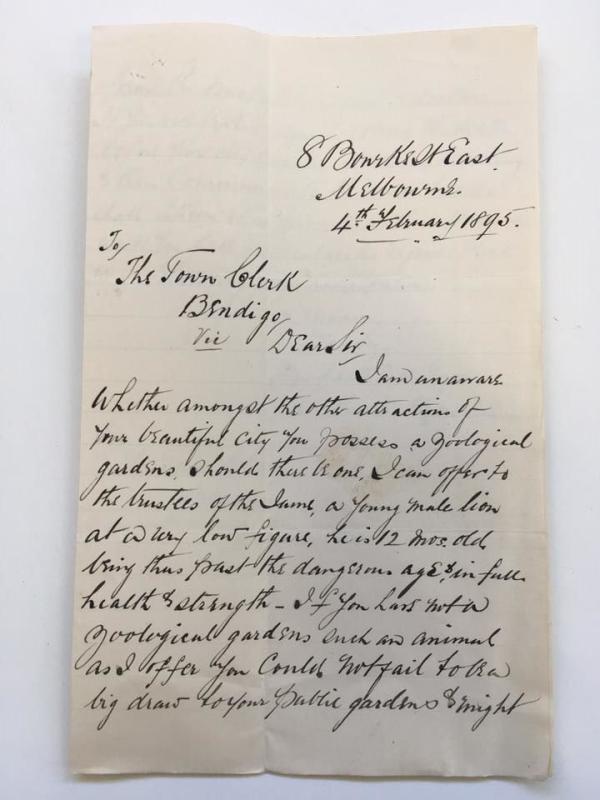 8 Bourke St East.
Melbourne.
4th February 1895.
To/
The Town Clerk
Bendigo,
Vic
Dear Sir,
I am unaware
Whether amongst the other attractions of
Your beautiful city You possess a zoological
gardens, should there be one, I can offer to
the trustees of the same, a young male lion
at a very low figure, he is 12 mos. old
being thus past the dangerous age & in full
health & strength - If You have not a
zoological gardens such an animal
as I offer You could not fail to be a
big draw to your public gardens & might